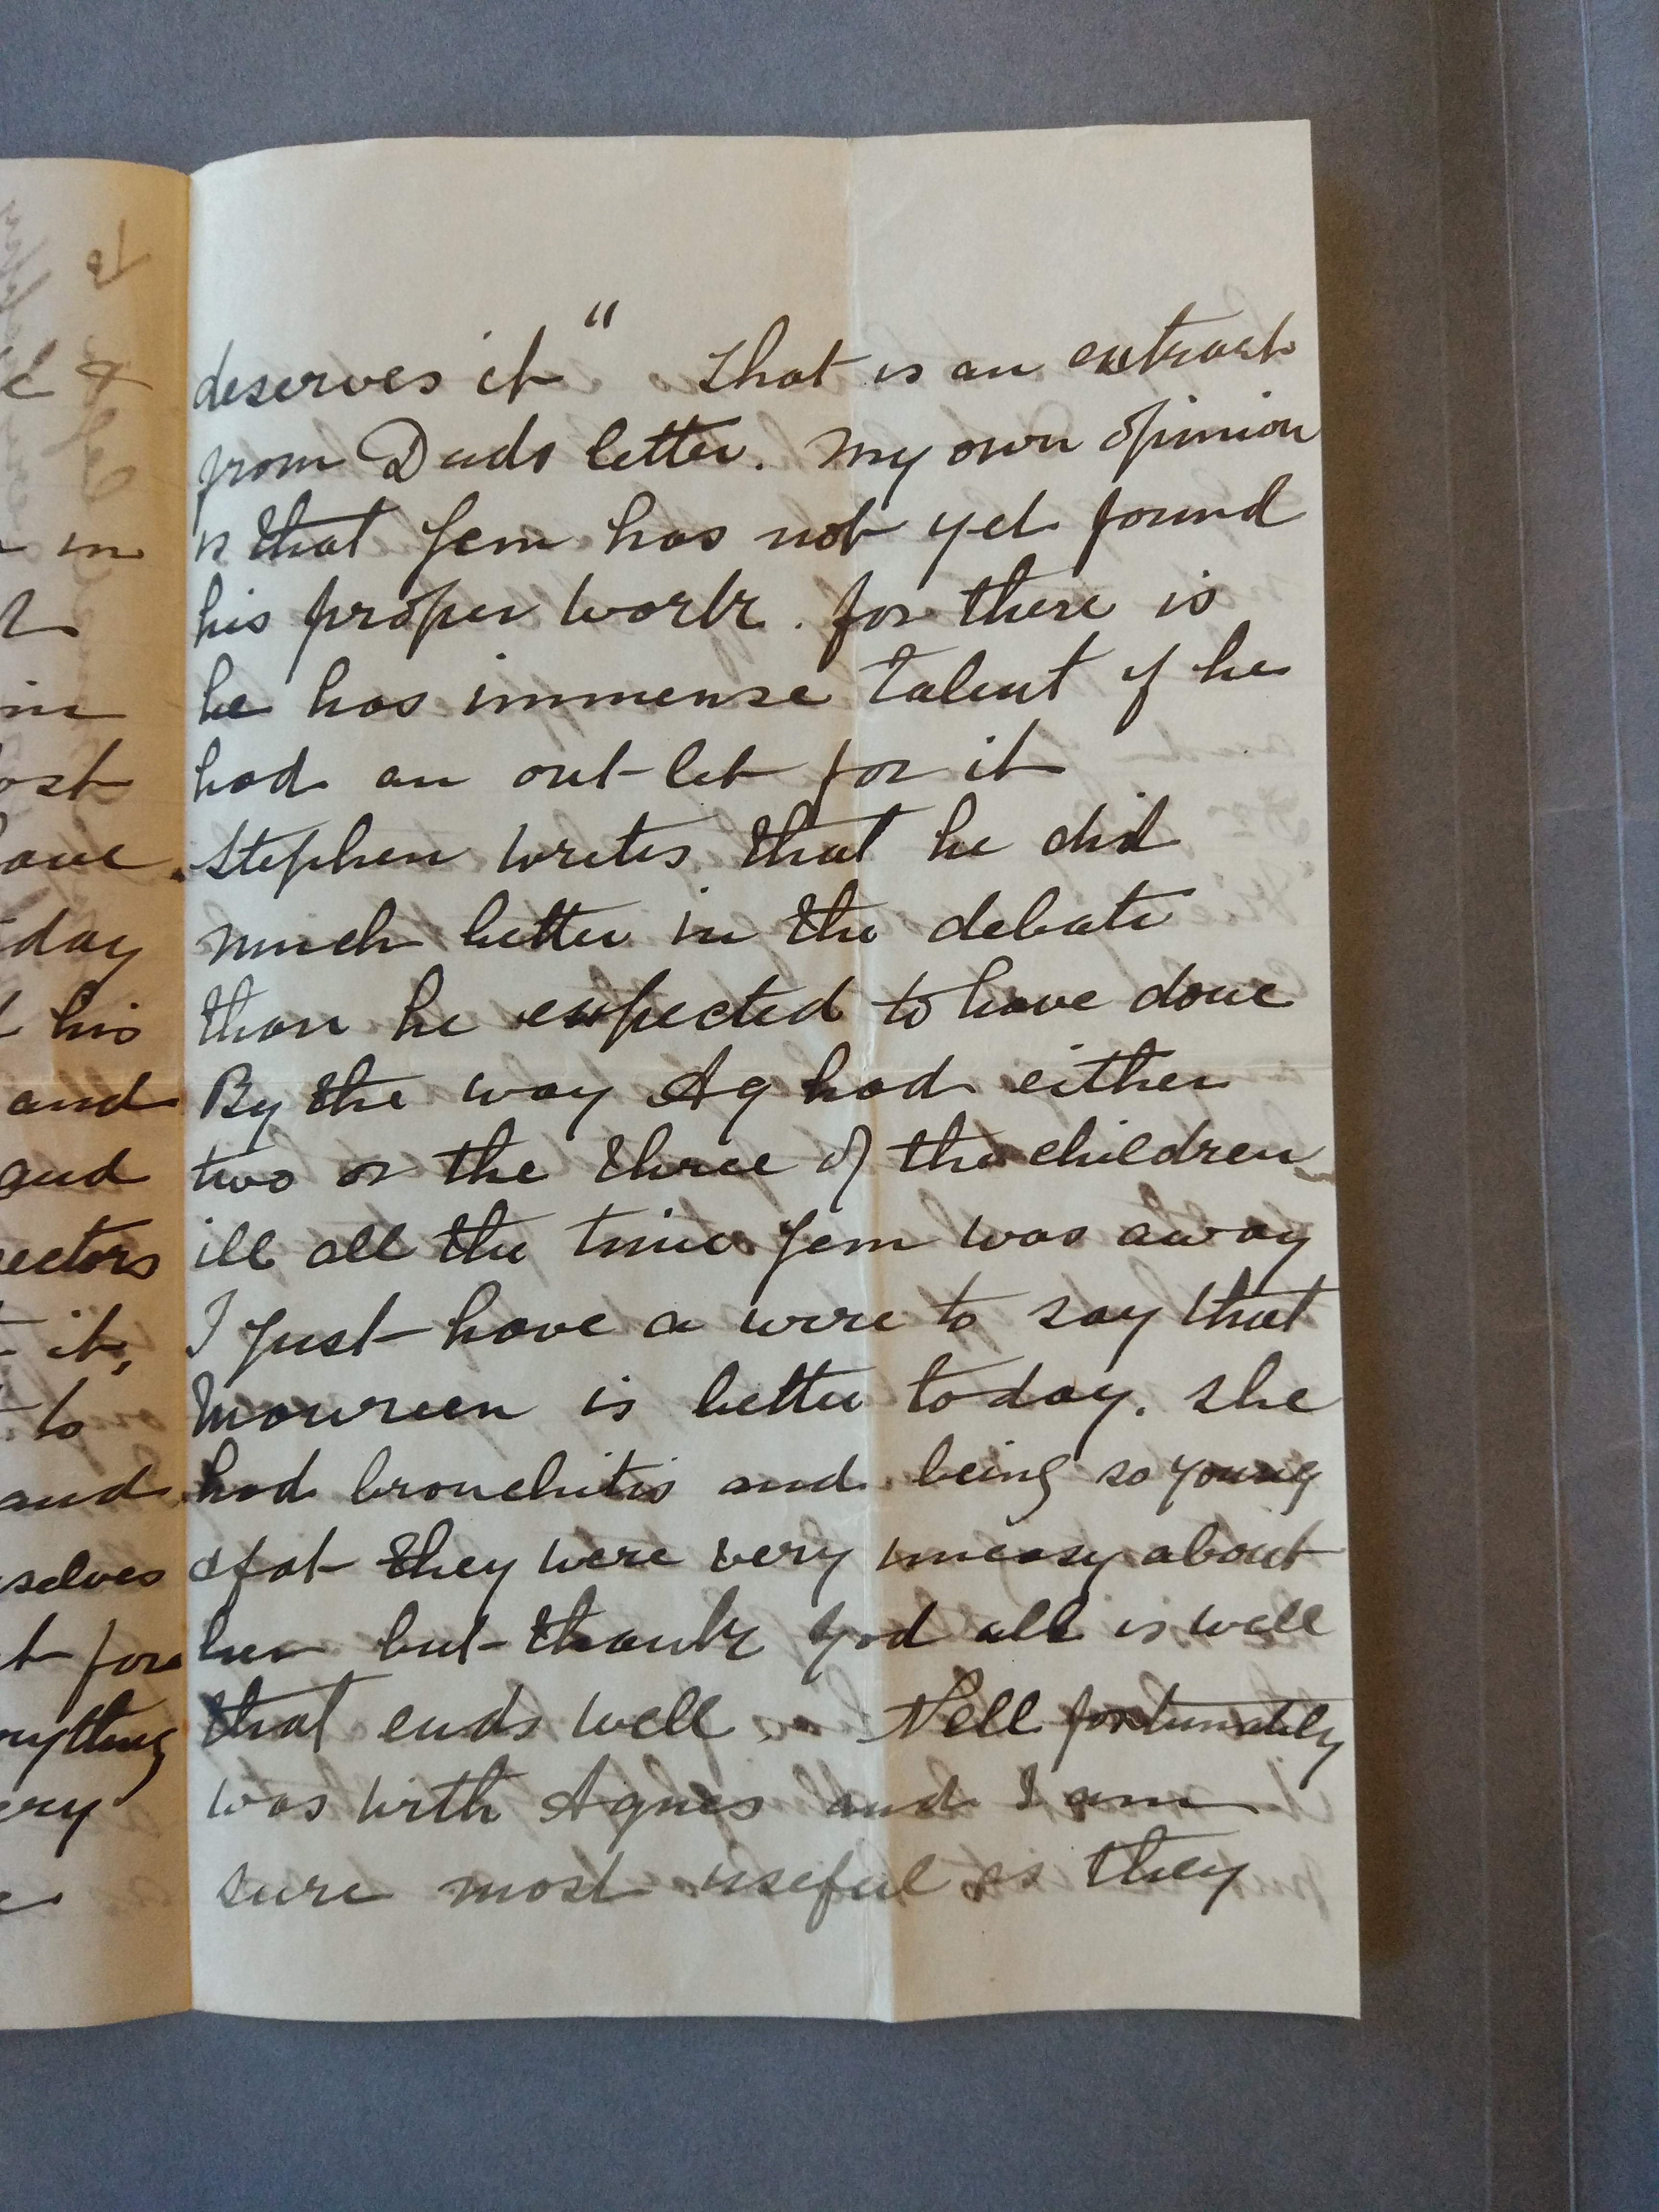 deserves it" That is an extract
from Dads letter. My own opinion
is that Jem has not yet found
his proper work. for there is
he has immense talent if he
had an out-let for it
Stephen writes that he did
much better in the debate
than he expected to have done
By the way Ag had either
two or the three of the children
ill all the time Jem was away
I just have a wire to say that
Mowreen is better today. She
had bronchitis and being so young
& fat they were very uneasy about
her but thank God all is well
that ends well. Nell fortunately
was with Agnes and I am
sure most useful as they
&
in
day
his
and
and
it,
to
and